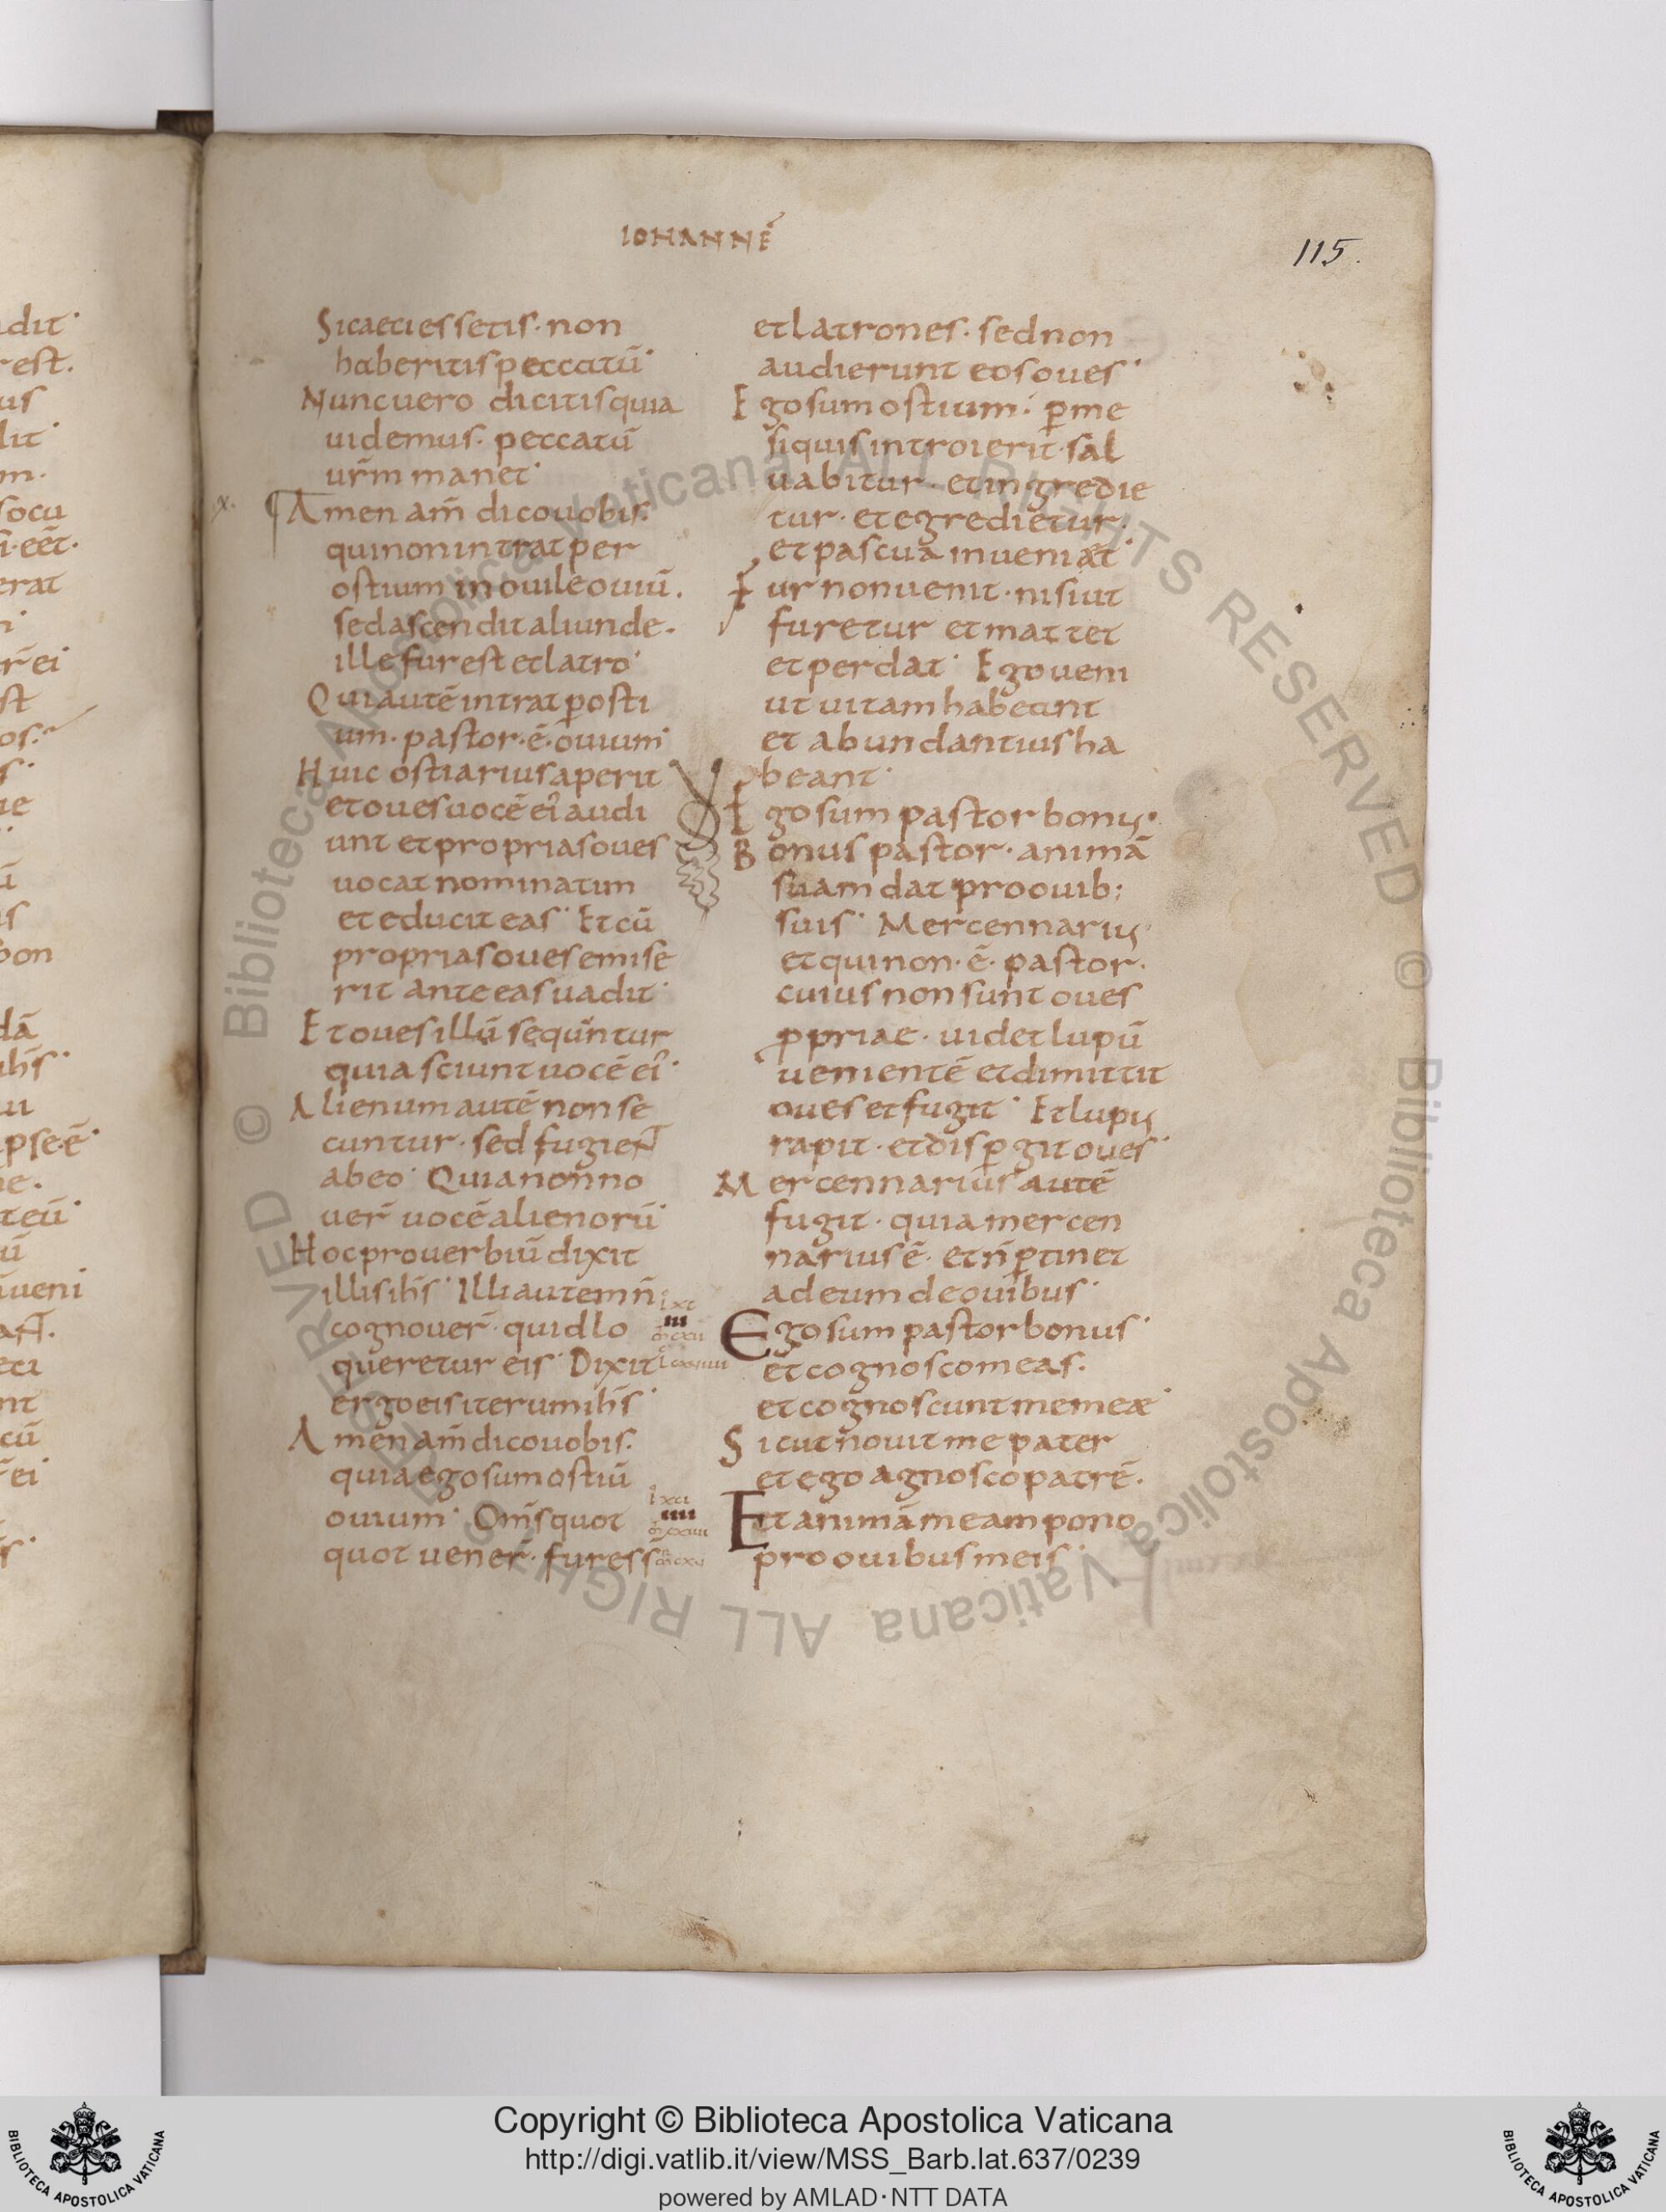 IOHANNĒ
115.
Si caeci essetis · non
haberitis peccatū ·
Nunc uero dicitis quia
uidemus · peccatū
ur̄m manet ·
Amen am̄ dico uobis ·
qui non intrat per
ostium in ouile ouiū .
sed ascendit aliunde .
ille fur est et latro ·
Qui autē intrat p̄ osti
um · pastor · ē · ouium ·
Huic ostiarius aperit
et oues uocē ei' audi
unt et proprias oues
uocat nominatim
et educit eas · Et cū
proprias oues emise
rit ante eas uadit ·
Et oues illū sequntur
quia sciunt uocē ei' ·
Alienum autē non se
cuntur · sed fugient
ab eo · Quia non no
uer̄ uocē alienorū ·
Hoc prouerbiū dixit
illis ih̄s · Illi autem n̄
cognouer̄ · quid lo
queretur eis · Dixit
ergo eis iterum ih̄s ·
Amen am̄ dico uobis .
quia ego sum ostiū
ouium · Om̄s quot
quot uener̄ · fures s̄
et latrones · sed non
audierunt eos oues ·
Ego sum ostium · p̄ me
si quis introierit · sal
uabitur · et ingredie
tur · et egredietur ·
et pascua inueniæt ·
Fur non uenit · nisi ut
furetur et mattet
et perdat · Ego ueni
ut uitam habeant
et abundantius ha
beant ·
Ego sum pastor bonus ·
Bonus pastor · animā
suam dat pro ouib;
suis · Mercennarius
et qui non · ē · pastor .
cuius non sunt oues
p̄priae · uidet lupū
uenientē et dimittit
oues et fugit · Et lupus
rapit · et disp̄git oues ·
Mercennarius autē
fugit · quia mercen
narius ē · et n̄ p̄tinet
ad eum de ouibus ·
Ego sum pastor bonus ·
et cognosco meas .
et cognoscunt me meæ ·
Sicut nouit me pater
et ego agnosco patrē .
Et animā meam pono
pro ouibus meis ·
Copyright © Biblioteca Apostolica Vaticana
http://digi.vatlib.it/view/MSS_Barb.lat.637/0239
powered by AMLAD·NTT DATA